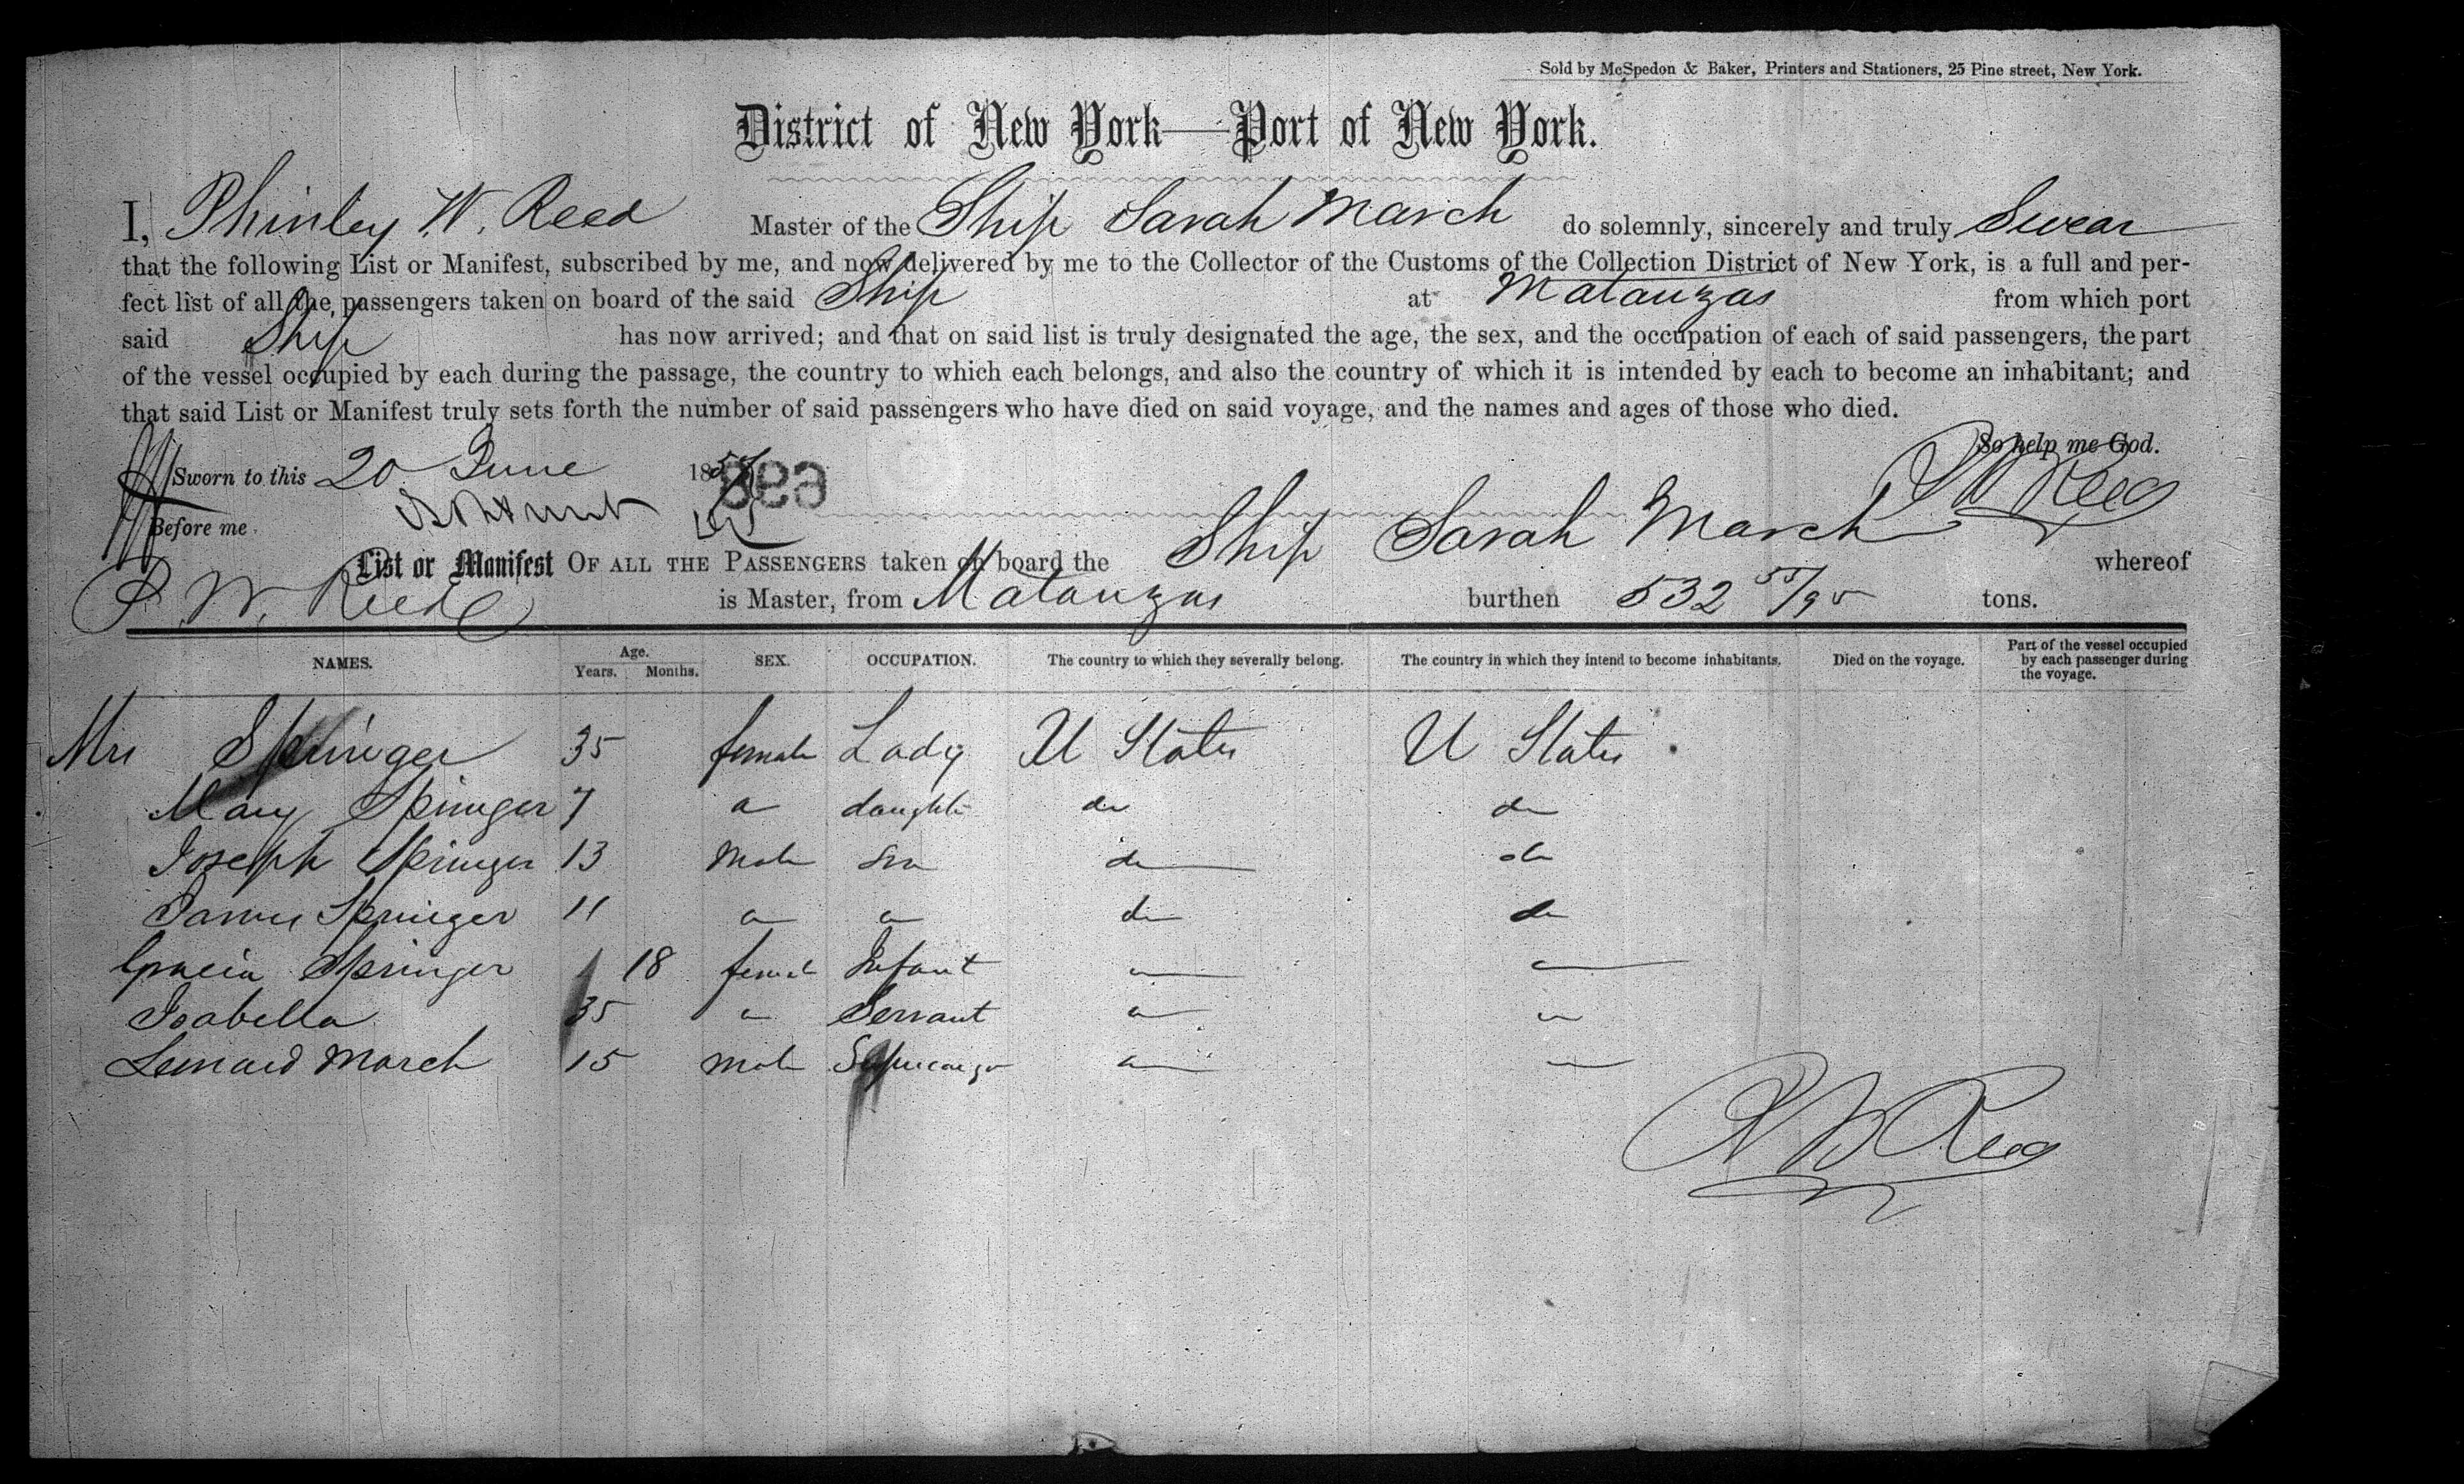 Sold by McSpedon & Baker, Printers and Stationers, 25 Pine street, New York.
District of New York—Port of New York.
I, Phinley W. Reed Master of the Ship Sarah March do solemnly, sincerely and truly Swear
that the following List or Manifest, subscribed by me, and now delivered by me to the Collector of the Customs of the Collection District of New York, is a full and per-
fect list of all the passengers taken on board of the said Ship at Matanzas from which port
said Ship has now arrived; and that on said list is truly designated the age, the sex, and the occupation of each of said passengers, the part
of the vessel occupied by each during the passage, the country to which each belongs, and also the country of which it is intended by each to become an inhabitant; and
that said List or Manifest truly sets forth the number of said passengers who have died on said voyage, and the names and ages of those who died.
So help me God.
Sworn to this 20 June 18 698 P W Reed
Before me
List or Manifest OF ALL THE PASSENGERS taken on board the Ship Sarah March whereof
P. W. Reed is Master, from Matanzas burthen 532 55/95 tons.
NAMES. Age. Years. Months. SEX. OCCUPATION. The country to which they severally belong. The country in which they intend to become inhabitants. Died on the voyage. Part of the vessel occupied by each passenger during the voyage.
Mrs Springer 35 female Lady U States U States
Mary Springer 7 " daughter do do
Joseph Springer 13 Male Son do do
James Springer 11 " " do do
Gracia Springer 18 female Infant " "
Isabella 35 " Servant " "
Lenard March 15 male Supercargo " "
P W Reed